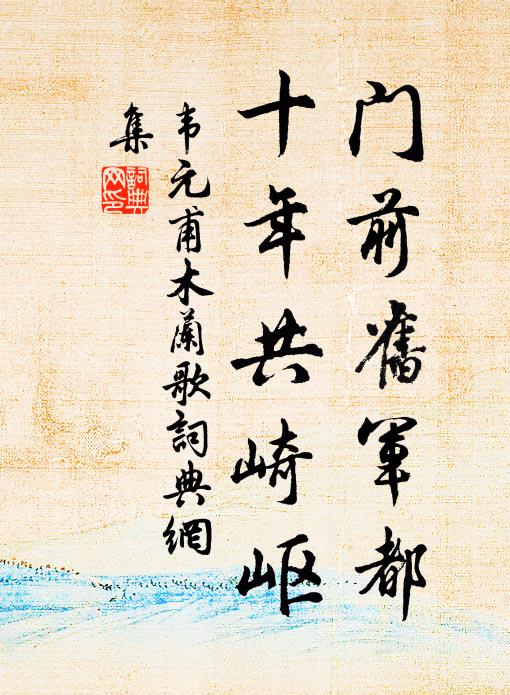 门前舊军都
十年共崎岖
韦元甫木蘭歌詞典網
集
詞典
网印